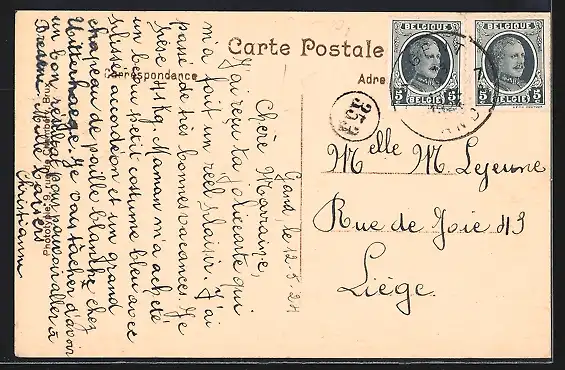 Carte Postale
Correspondance
Adre
BELGIQUE
BELGIQUE
5 BELGIE 5
5 BELGIE 5
353
Gand, le 12.8.24
Chère Marraine,
J'ai reçu ta jolie carte qui
m'a fait un réel plaisir. J'ai
passé de très bonnes vacances. Je
pèse 41 kg. Maman m'a acheté
un beau petit costume bleu avec
plissé accordéon et un grand
chapeau de paille blanche chez
Uitterhaege. Je vais tâcher d'avoir
un bon résultat pour pouvoir aller à
Mille baisers
Christiane
Melle M. Lejeune
Rue de Joie 43
Liège.